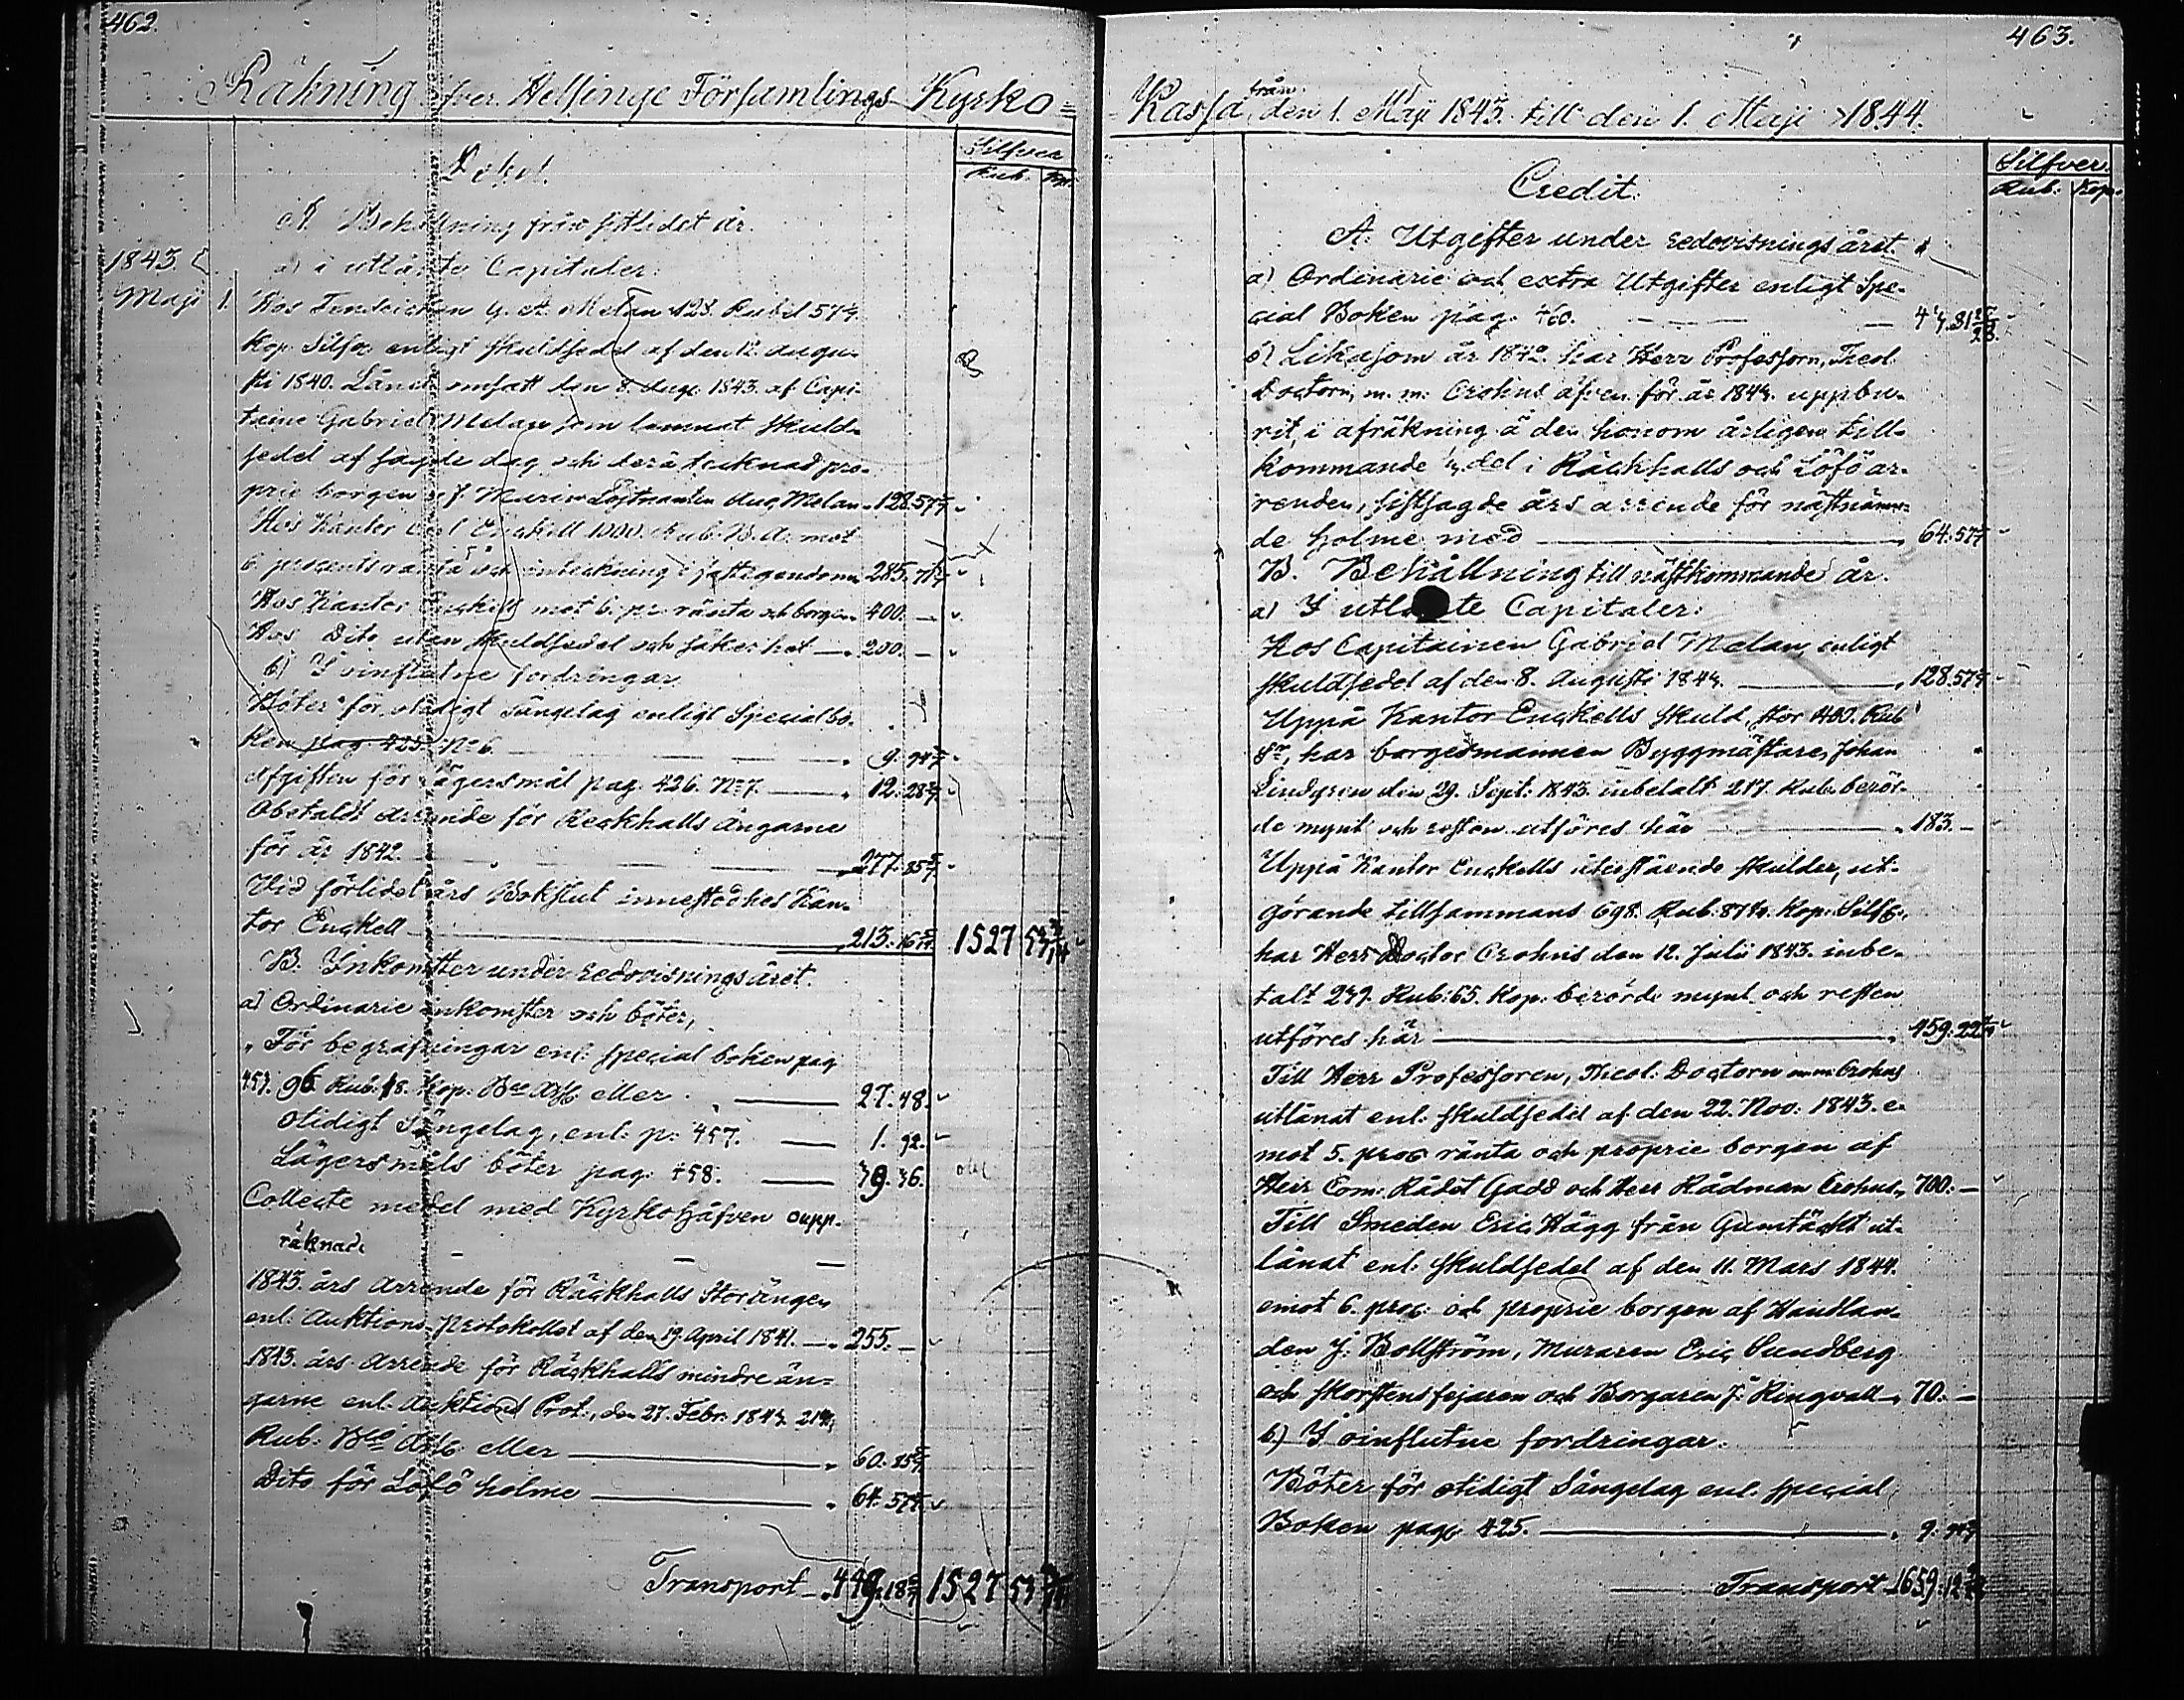 462.
Räkning öfver Helsinge Församlings Kyrko=
Debet.
Silfver
Rub. Kop.
A Behållning från sistledet år.
1843.
a) i utlånte Capitaler:
Maji 1.
Hos Fendrichen G. A. Melan 128. Rubel 57 1/7
Kop. Silfr enligt skuldsedel af den 12. Augu-
sti 1840. Lånet omsatt den 8. Aug. 1843. af Capi-
taine Gabriel Melan som lemnat skuld-
sedel af sagde dag och derå tecknad pro-
prie borgen af Löjtnanten Aug. Melan 128.57 1/7
Hos Kantor Enckell 1000. Rub. B. A. mot
6. procents ränta och inteckning i fastegendom 285.71 3/7
Hos Kantor Enckell mot 6. pr. ränta och borgen 400. —
Hos Dito utan skuldsedel och säkerhet — 200. —
b) I oinflutne fordringar
Böter för otidigt sängelag enligt Specialbo-
ken pag. 425. No 6. — 9.
Afgiften för Lägersmål pag. 426. No 7. — 12. 28 4/7
Obetaldt Arrende för Reckhalls Ängarne
för år 1842. — 277. 85 5/7
Vid förlidet års Bokslut innestod hos Kan-
tor Enckell — 213. 1527 53
B. Inkomster under redovisningsåret.
a) Ordinarie inkomster och böter,
„ För begrafningar enl: special boken pag
457. 96 Rub. 18. Kop. Bco Ass. eller — 27. 48.
Otidigt Sängelag, enl: p: 457. — 1. 92.
Lägersmåls böter pag: 458. — 39. 36.
Collecte medel med Kyrkohåfven oupp-
räknade — — —
1843. års Arrende för Räckhalls Storängen
enl: Auktions Protokollet af den 19. April 1841. — 255. —
1843. års Arrende för Räckhalls mindre än-
garne enl. Auktions Prot., den 27. Febr: 1843.
Rub: Bco Ass: eller — 60. 85 5/7
Dito för Löfö holme — 64. 57 1/7
Transport — 449. 18 1527 53
463.
Kassa från den 1. Maji 1843. till den 1. Maji 1844.
Credit.
Silfver.
Rub: Kop.
A: Utgifter under redovisnings året.
a) Ordinarie och extra Utgifter enligt Spe-
cial Boken pag. 460. —
b) Likasom år 1842. har Herr Professorn, Theol.
Doctorn, m. m: Crohns äfven för år 1843. uppbu-
rit, i afräkning å den honom årligen till-
kommande del i Räckhalls och Löfö ar-
renden, sistsagde års arrende för nästnämn-
de holme med — 64.57 1/7
B. Behållning till nästkommande år.
a) I utlånte Capitaler:
Hos Capitainen Gabriel Melan, enligt
skuldsedel af den 8. Augusti 1843. — 128.57 1/7
Uppå Kantor Enckells skuld, stor 400. Rub
Sr, har borgesmannen Byggmästaren Johan
Lindgren den 29. Sept: 1843. inbetalt 217. Rub. berör-
de mynt och resten utföres här — 183. —
Uppå Kantor Enckells återstående skulder, ut-
görande tillsammans 698. Rub: 87 Kop: Silfr,
har Herr Doctor Crohns den 12. Julii 1843. inbe-
talt 239. Rub: 65. Kop: berörde mynt och resten
utföres här — 459.22
Till Herr Professoren, Theol: Doctorn m.m. Crohns
utlånat enl: skuldsedel af den 22. Nov: 1843. e-
mot 5. proc ränta och proprie borgen af
Herr Com: Rådet Gadd och Herr Rådman Crohns, 700: —
Till Smeden Eric Hägg från Gumtäckt ut-
lånat enl: skuldsedel af den 11. Mars 1844.
emot 6. proc: och proprie borgen af Handlan-
den J: Bollström, Muraren Eric Sundberg
och Skorstensfejaren och Borgaren J: Ringvall — 70. —
b.) I oinflutne fordringar:
Böter för otidigt Sängelag enl. special
Boken pag. 425. — 9.
Transport 1659:12